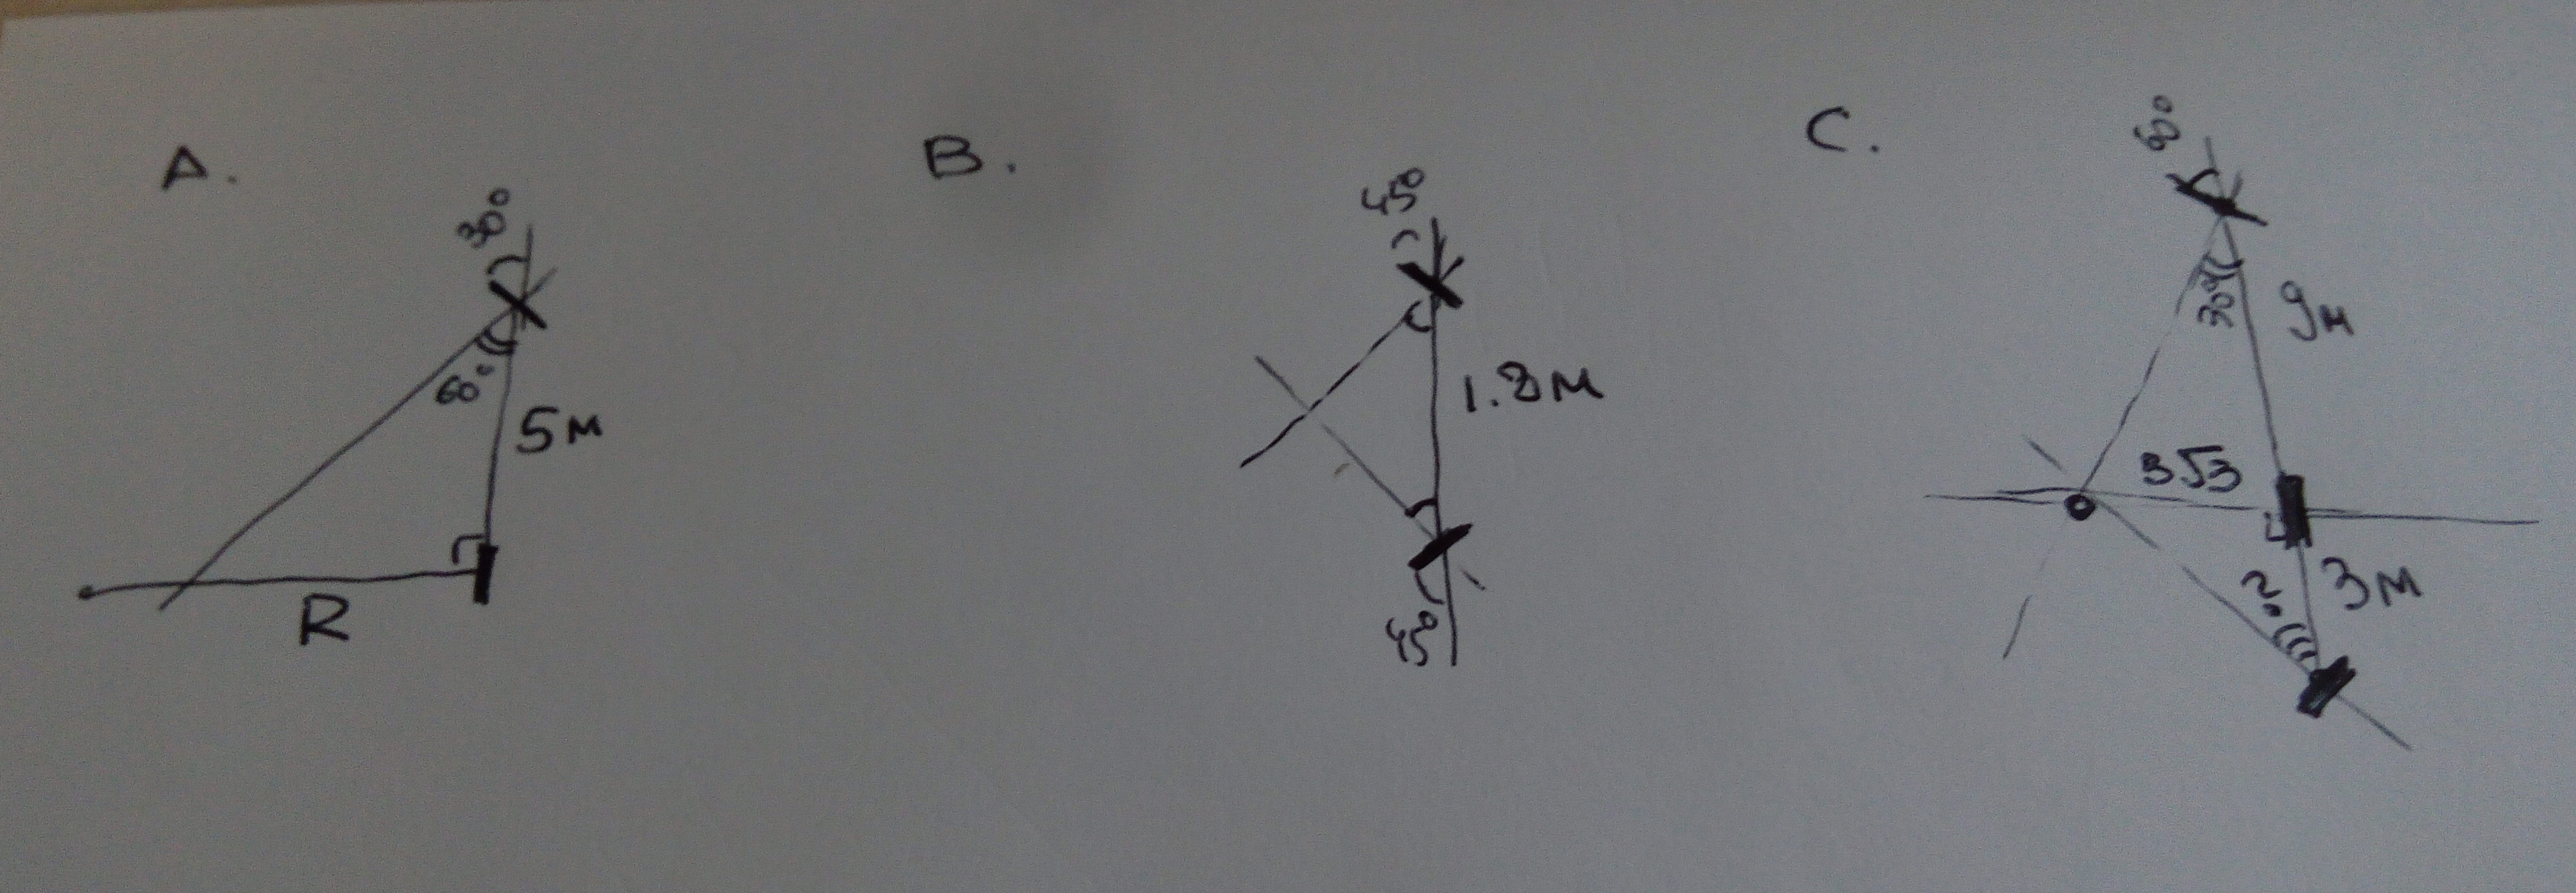 A.
30°
60°
5м
R
B.
45°
1.8м
45°
C.
60°
30°
9м
3√3
3м
?